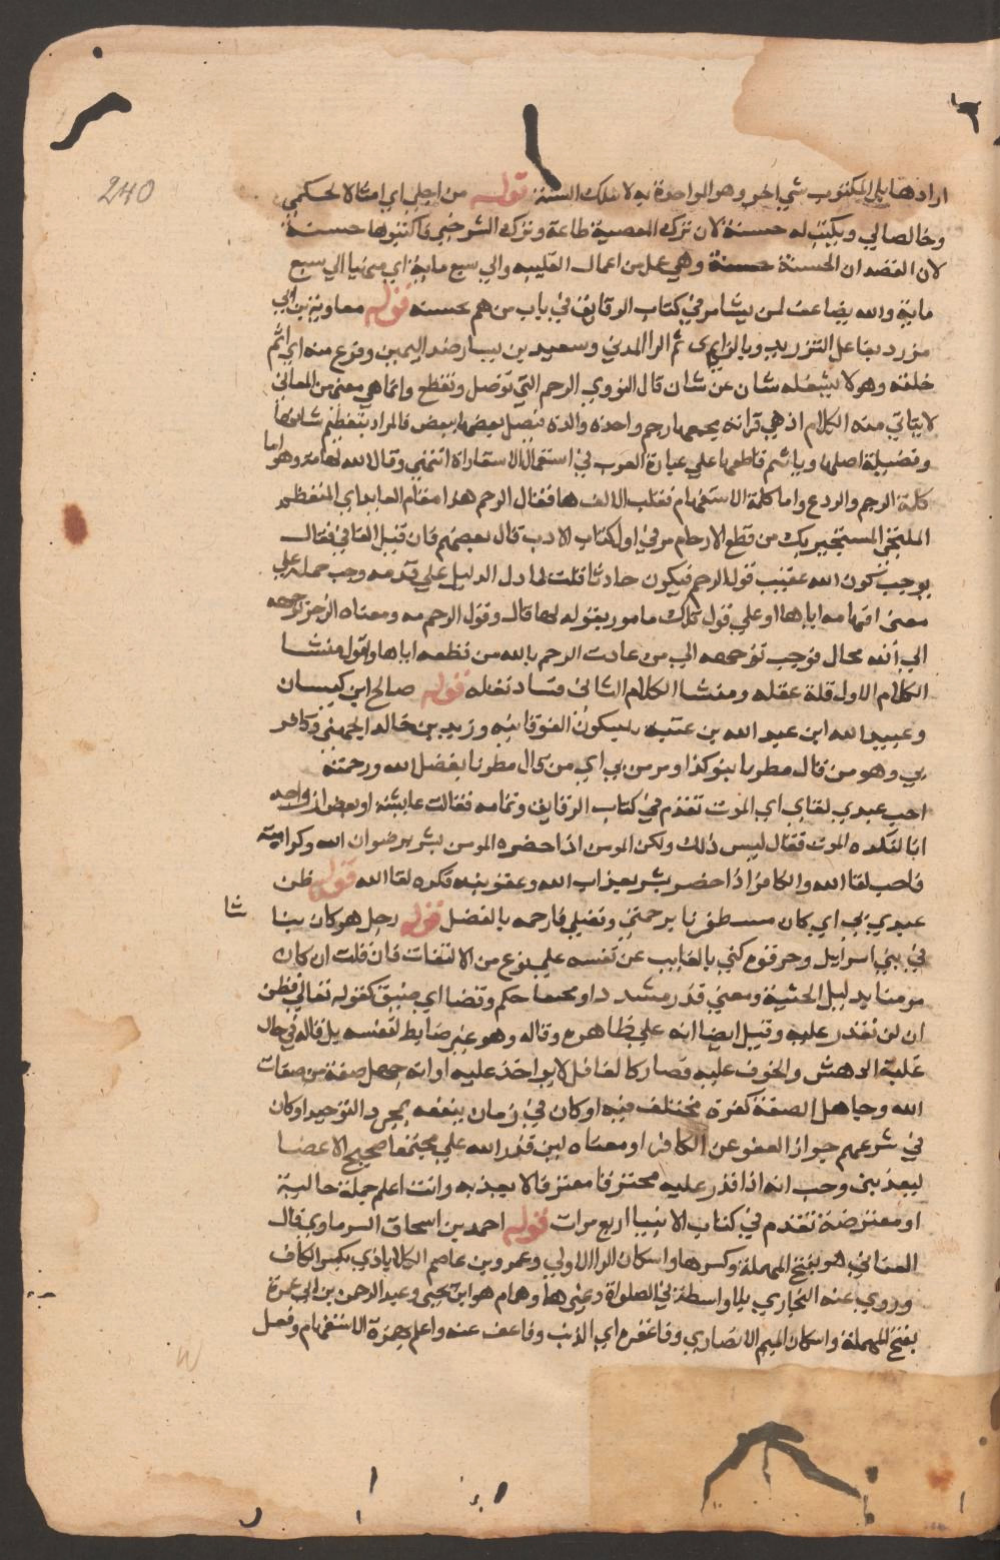 240
ارادها بل المكتوب شي اخر وهو الواحدة به لا تلك السنة قوله من اجلي اي امتثالا لحكمي
وخالصا لي ويكتب له حسنة لان ترك المعصية طاعة وترك الشر خير فاكتبوها حسنة
لان القصد ان الحسنة حسنة وهي عمل من اعمال القلب والي سبع ماية اي منتهيا الي سبع
ماية والله يضاعف لمن يشا مر في كتاب الرقايق في باب من هم بحسنة قوله معاوية بن ابي
مزرد بفاعل التزريد وبالزاي ثم الرا المدني وسعيد بن يسار ضد اليمين وفرغ منه اي اتم
خلقه وهو لا يشغله شان عن شان قال النووي الرحم التي توصل وتقطع وانما هي معني من المعاني
لا يتاتي منه الكلام اذ هي قرابة يجمعها رحم واحدة والدة فيصل بعضها ببعض فالمراد بتعظيم شانها
وفضيلة اصلها وياثم قاطعها علي عادة العرب في استعمال الاستعارات انتهي وقال الله لها مه وهو اما
كلمة الزجر والردع واما كلمة الاستفهام فقلب الالف ها فقال الرحم هذا مقام العايذ اي المعتصم
الملتجي المستجير بك من قطع الارحام مر في اول كتاب الادب قال بعضهم فان قيل الفا في فقال
يوجب كون الله عقيب قول الرحم فيكون حادثا قلت لما دل الدليل علي قدمه وجب حمله علي
معني افهامه اياها او علي قول ملك مامور بقوله لها قال وقول الرحم مه ومعناه الزجر توجهه
الي الله محال فوجب توجهه الي من عاذت الرحم بالله من قطعه اياها واقول منشا
الكلام الاول قلة عقله ومنشا الكلام الثاني فساد نقله قوله صالح ابن كيسان
وعبيد الله ابن عبد الله بن عتبة بسكون الفوقانية وزيد بن خالد الجهني وكافر
بي وهو من قال مطرنا بنو كذا ومومن بي اي من قال مطرنا بفضل الله ورحمته
احب عبدي لقاي اي الموت تقدم في كتاب الرقايق وتمامه فقالت عايشة او بعض ازواجه
انا لنكره الموت فقال ليس ذلك ولكن المومن اذا حضره الموت بشر برضوان الله وكرامته
فاحب لقا الله والكافر اذا حضر بشر بعذاب الله وعقوبته فكره لقا الله قوله ظن
عبدي بي اي كان مستظهرا برحمتي وفضلي فارحمه بالفضل قوله رجل هو كان نبا
شا
في بني اسرايل وحرقوه كني بالغايب عن نفسه علي نوع من الالتفات فان قلت ان كان
مومنا بدليل الخشية ومعني قدر مشددا ومخففا حكم وقضا اي ضيق كقوله تعالي فظن
ان لن نقدر عليه وقيل ايضا انه علي ظاهره وقاله وهو غير ضابط لنفسه بل قاله في حال
غلبة الدهش والخوف عليه فصار كالغافل لا يواخذ عليه او انه جهل صفة من صفات
الله وجاهل الصفة كفره مختلف فيه او كان في زمان ينفعه مجرد التوحيد او كان
في شرعهم جواز العفو عن الكافر او معناه لين قدر الله علي مجتمعا صحيح الاعضا
ليعذبني وحسب انه اذا قدر عليه محترقا مفترقا لا يعذبه وانت اعلم جملة حالية
او معترضة تقدم في كتاب الانبيا اربع مرات قوله احمد بن اسحاق السرماوي قال
الغساني هو بفتح المهملة وكسرها واسكان الرا الاولي وعمرو بن عاصم الكلاباذي بكسر الكاف
وروي عنه البخاري بلا واسطة في الصلوة وغيرها وهمام هو ابن يحيي وعبد الرحمن بن ابي عمرة
بفتح المهملة واسكان الميم الانصاري وفاغفره اي الذنب وفاعف عنه واعلم همزة الاستفهام وفعل